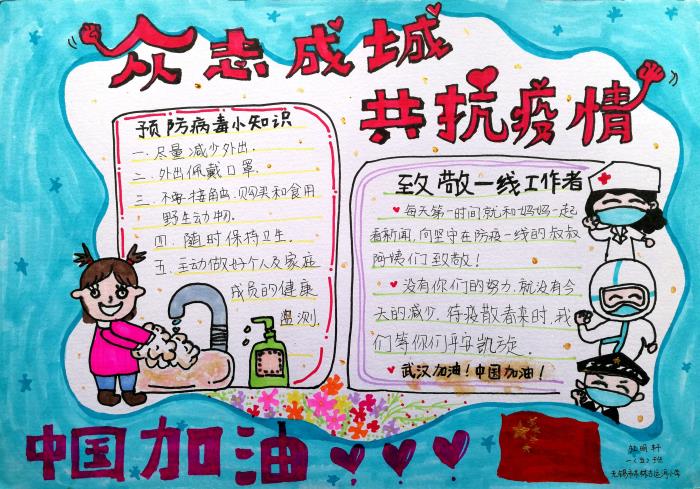 众志成城
共抗疫情
预防病毒小知识
一.尽量减少外出.
二.外出佩戴口罩.
三.不要接触、购买和食用
野生动物.
四.随时保持卫生.
五.主动做好个人及家庭
成员的健康
监测.
致敬一线工作者
每天第一时间就和妈妈一起
看新闻,向坚守在防疫一线的叔叔
阿姨们致敬!
没有你们的努力,就没有今
天的减少.待疫散春来时,我
们等你们平安凯旋.
武汉加油!中国加油!
中国加油
一(5)班